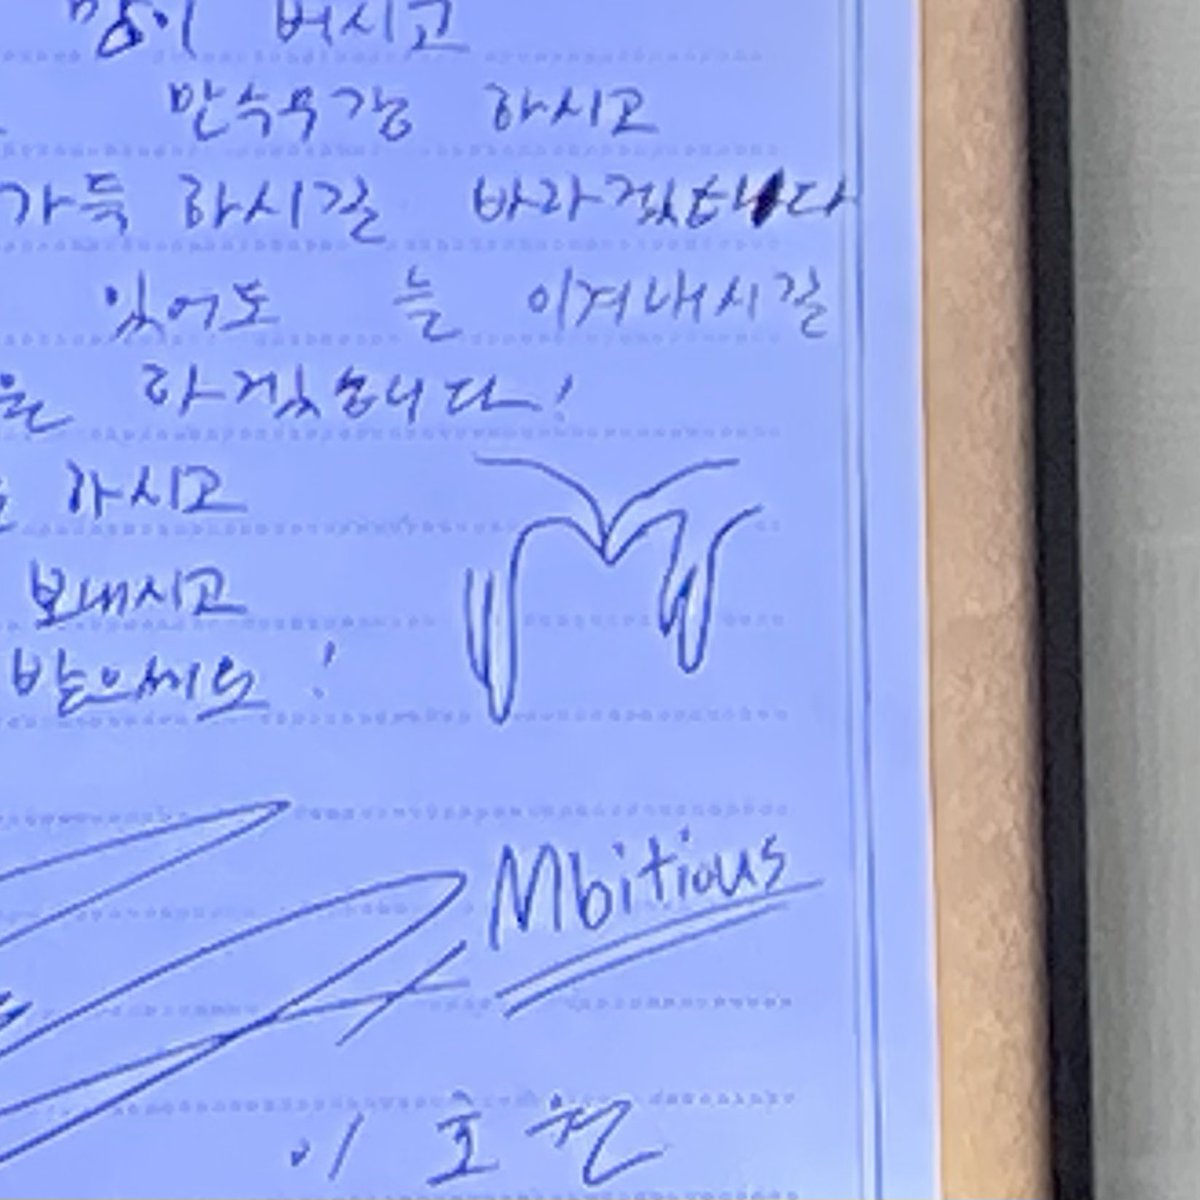 많이 버시고
만수무강 하시고
가득 하시길 바라겠습니다
있어도 늘 이겨내시길
하겠습니다!
하시고
보내시고
받으쎄요!
Mbitious
이호원